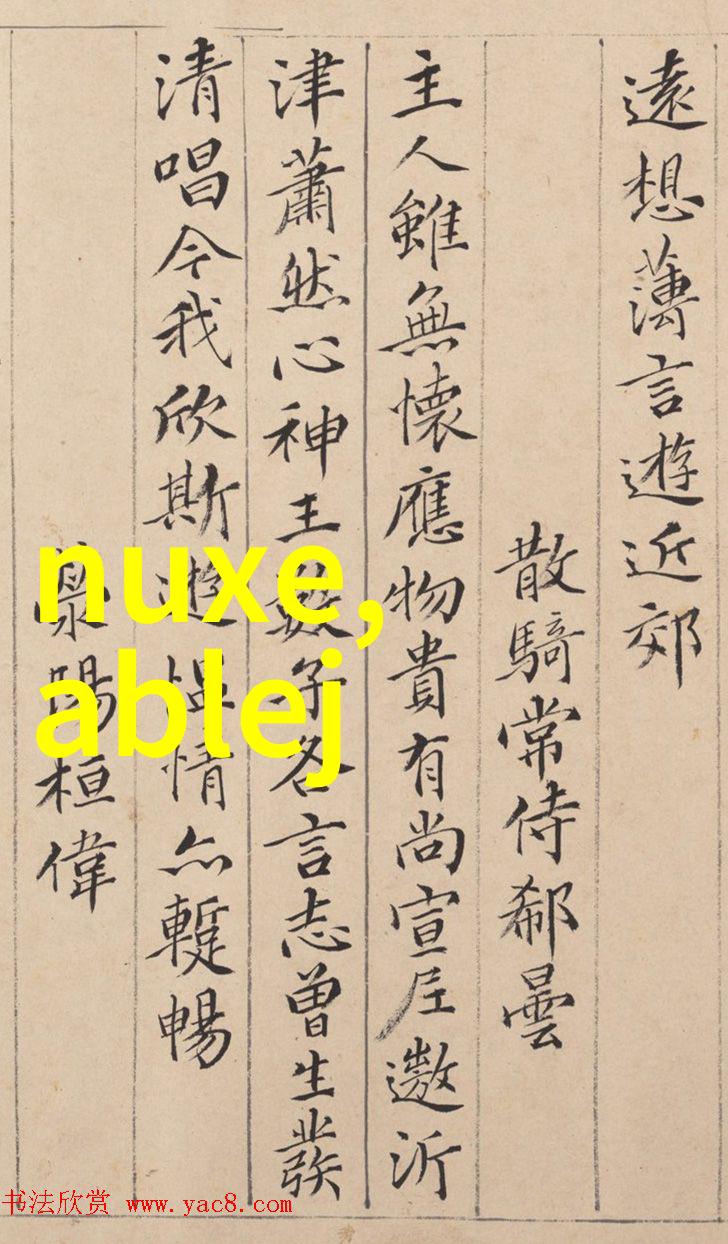 遠想薄言遊近郊
散騎常侍郗曇
主人雖無懷應物貴有尚宣尼遨沂
津蕭然心神王數子各言志曾生發
清唱今我欣斯遊慍情亦蹔暢
滎陽桓偉
nuxe,
ablej
书法欣赏 www.yac8.com